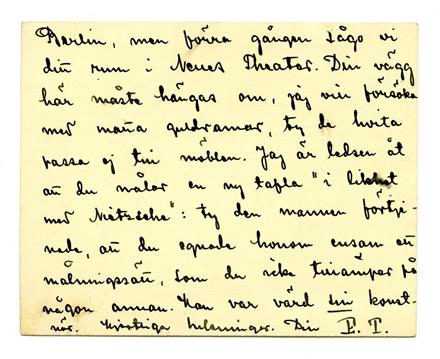 Berlin, men förra gången sågo vi
ditt rum i Neues Theater. Din vägg
här måste hängas om, jag vill försöka
med matta guldramar, ty de hvita
passa ej till möblen. Jag är ledsen åt
att du målar en ny tafla "i likhet
med Nietzsche": ty den mannen förtje-
nade, att du egnade honom ensam ett
målningssätt, som du icke tillämpar på
någon annan. Han var värd sin konst-
när. Hjertliga helsningar. Din E. T.